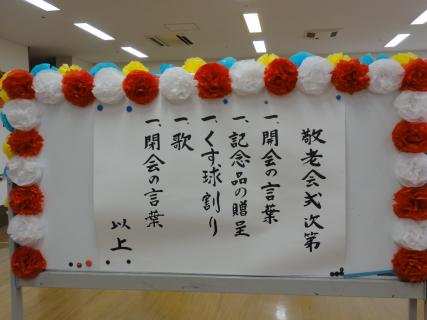 敬老会式次第
一、開会の言葉
一、記念品の贈呈
一、くす球割り
一、歌
一、閉会の言葉
以上